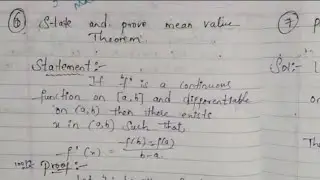 ⑥ State and prove mean value
Theorem.
Statement:-
If 'f' is a continuous
function on [a,b] and differentiable
on (a,b) then there exists
x in (a,b) such that
f'(x) = f(b)-f(a)
b-a
Proof:-
⑦
Sol:-